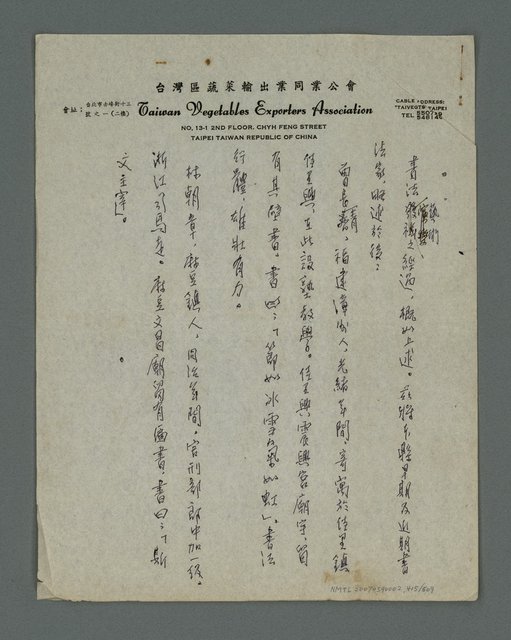 台灣區蔬菜輸出業同業公會
會址：台北市赤峰街十三號之一(二樓)
Taiwan Vegetables Exporters Association
CABLE ADDRESS:
"TAIVEGTS" TAIPEI
TEL
NO. 13-1 2ND FLOOR, CHYH FENG STREET
TAIPEI TAIWAN REPUBLIC OF CHINA
書法藝術發揚之經過，概如上述。茲將本縣早期及近期書
法家略述於後：
曾長青，福建漳州人，光緒年間寄寓於佳里鎮
佳里興，在此設塾教學。佳里興震興宮廟宇，留
有其壁書，書曰：「節如冰雪氣如虹」。書法
行體，雄壯有力。
林朝章，麻豆鎮人，同治年間，官刑部郎中加一級。
浙江引馬走。麻豆文昌廟留有匾書，書曰：「斯
文主宰」。
NMTL 20070590002 415/609